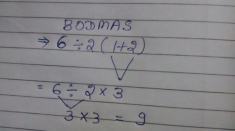 BODMAS
⇒ 6 ÷ 2 ( 1+2 )
= 6 ÷ 2 × 3
3 × 3 = 9